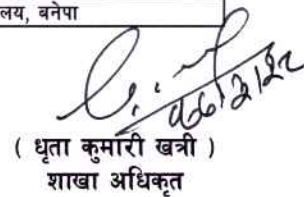 लय, बनेपा
( धृता कुमारी खत्री )
शाखा अधिकृत